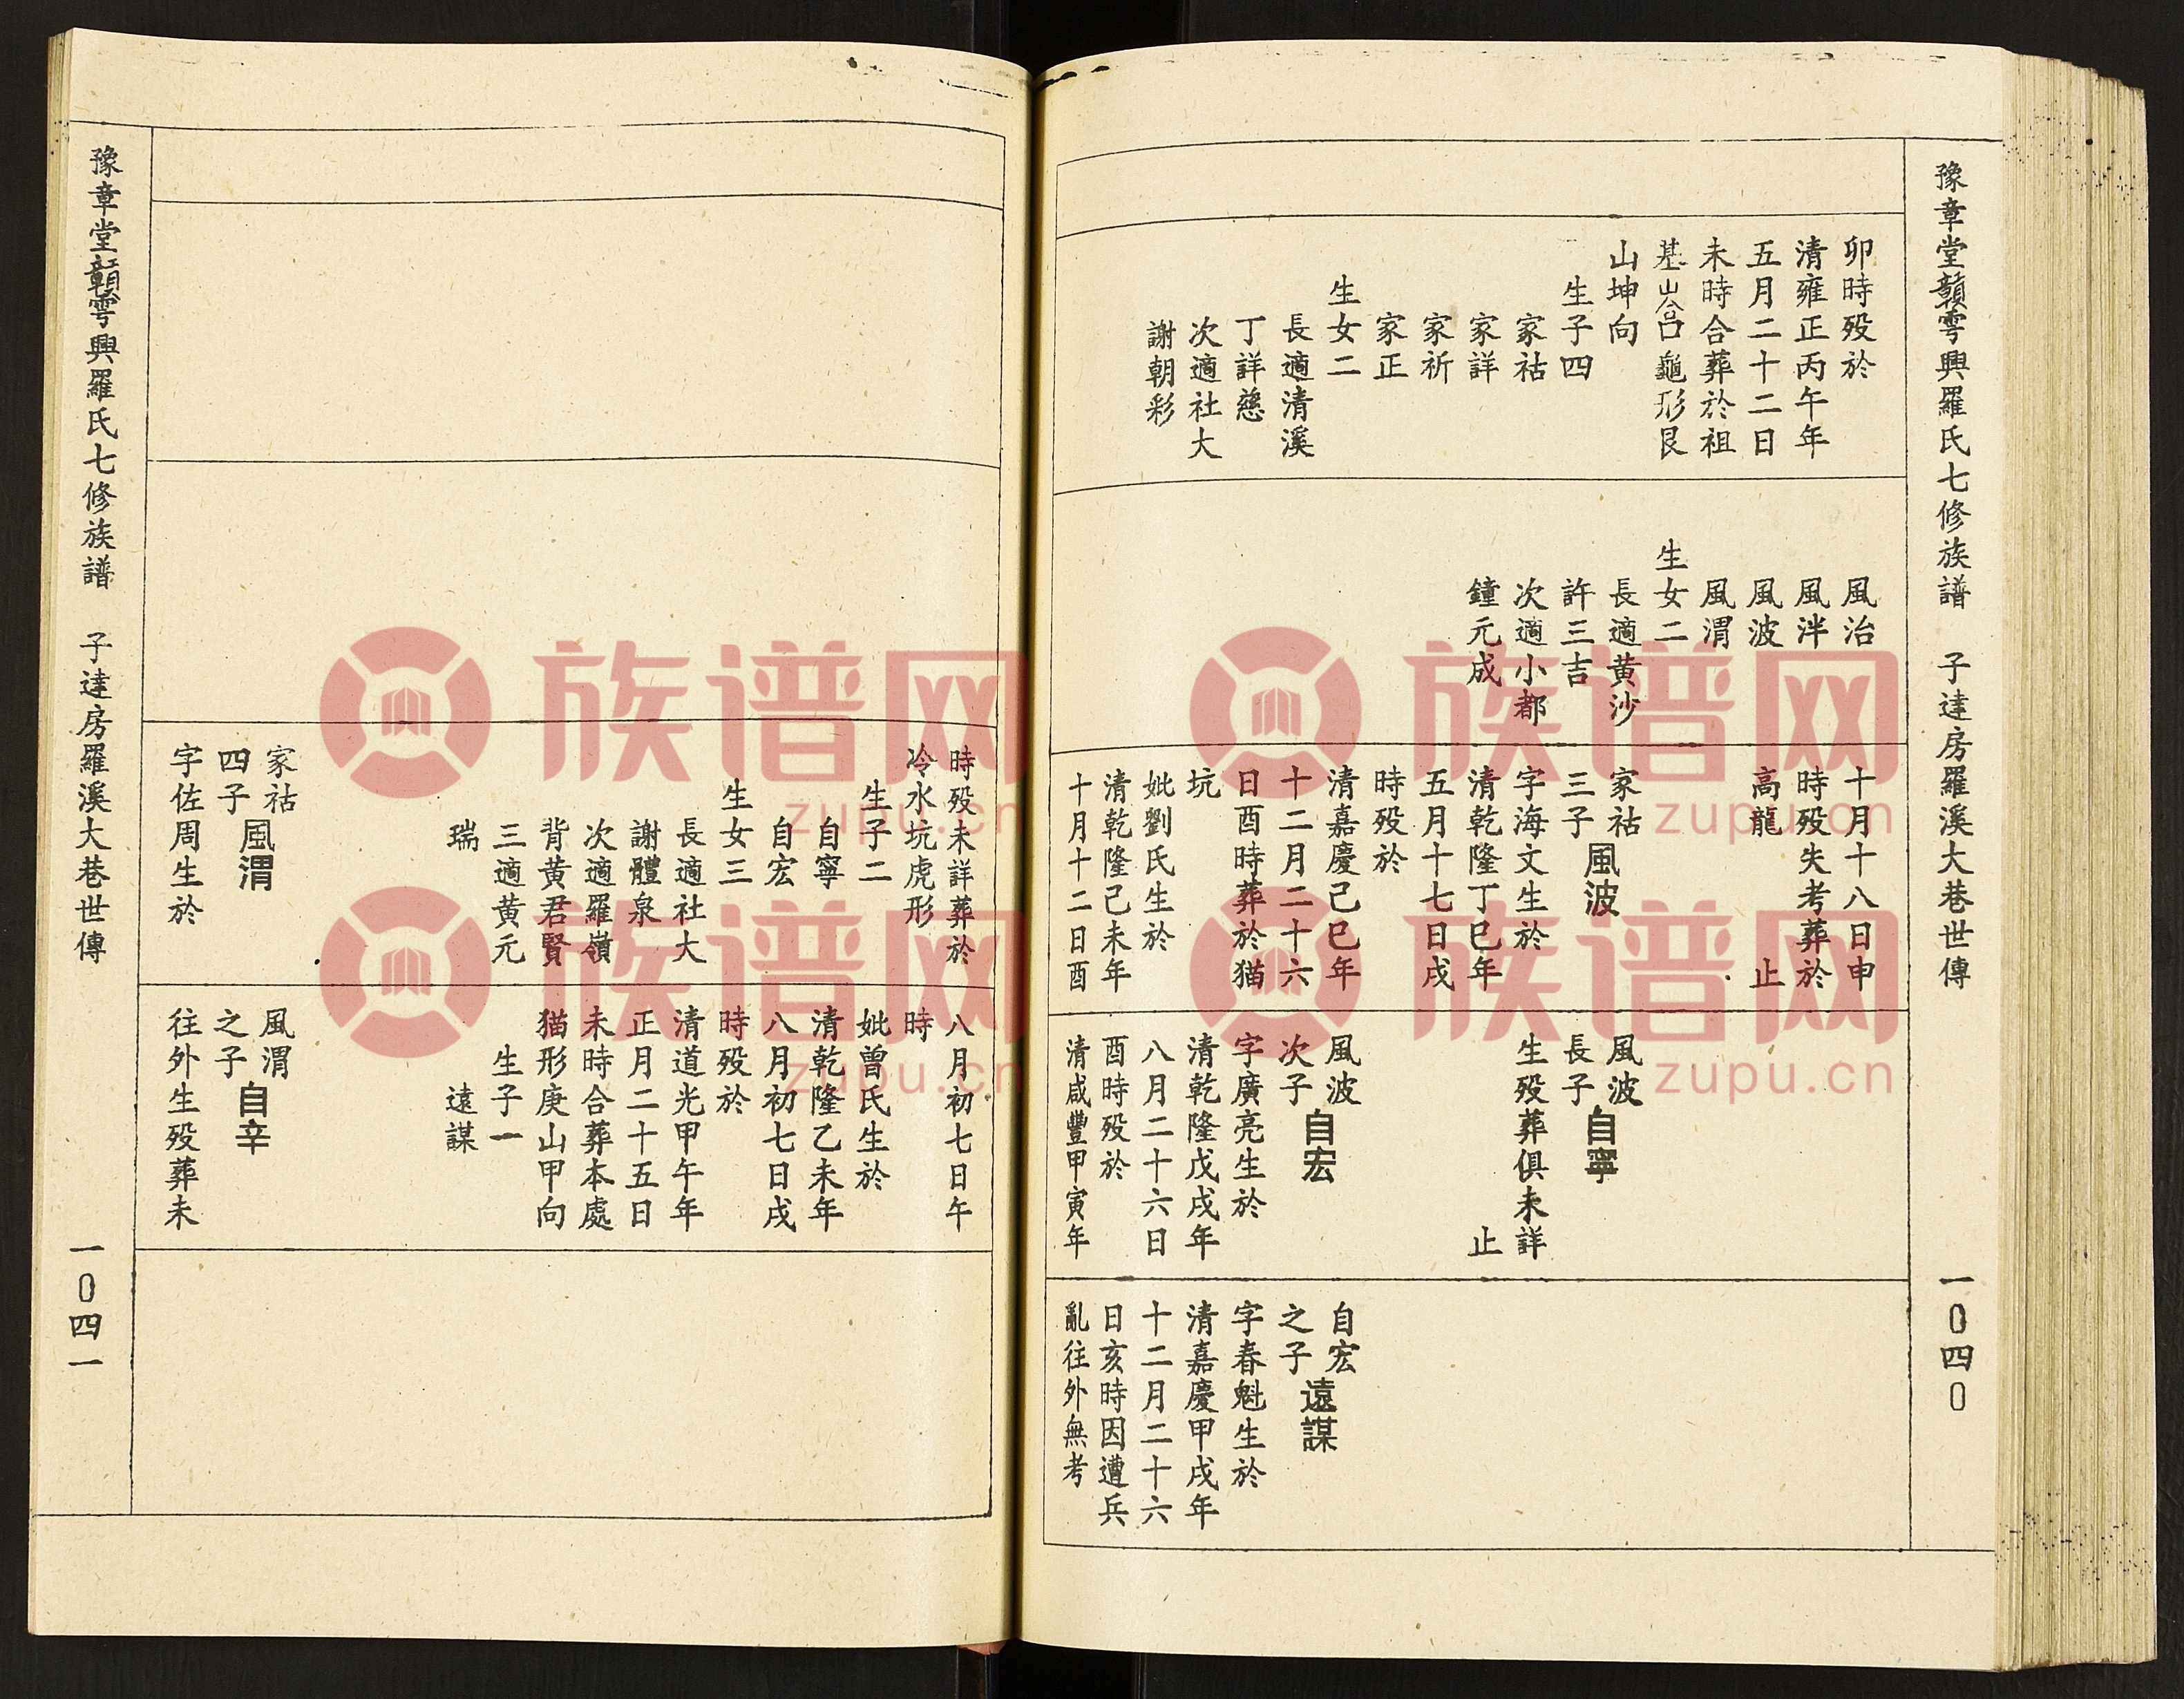 豫章堂贛雩興羅氏七修族譜　子達房羅溪大巷世傳　一〇四〇
卯時殁於
清雍正丙午年
五月二十二日
未時合葬於祖
基龜形艮
山坤向
生子四
家祜
家詳
家祈
家正
生女二
長適清溪
丁詳慈
次適社大
謝朝彩
風治
風泮
風波
風渭
生女二
長適黄沙
許三吉
次適小都
鐘元成
十月十八日申
時殁失考葬於
高龍　止
家祜
三子
風波
字海文生於
清乾隆丁巳年
五月十七日戌
時殁於
清嘉慶己巳年
十二月二十六
日酉時葬於猫
坑
妣劉氏生於
清乾隆己未年
十月十二日酉
風波
長子
自寧
生殁葬俱未詳
止
風波
次子
自宏
字廣亮生於
清乾隆戊戌年
八月二十六日
酉時殁於
清咸豐甲寅年
自宏
之子
遠謀
字春魁生於
清嘉慶甲戌年
十二月二十六
日亥時因遭兵
亂往外無考
時殁未詳葬於
冷水坑虎形
生子二
自寧
自宏
生女三
長適社大
謝體泉
次適羅嶺
背黄君賢
三適黄元
瑞
家祜
四子
風渭
字佐周生於
八月初七日午
時
妣曾氏生於
清乾隆乙未年
八月初七日戌
時殁於
清道光甲午年
正月二十五日
未時合葬本處
猫形庚山甲向
生子一
遠謀
風渭
之子
自辛
往外生殁葬未
豫章堂贛雩興羅氏七修族譜　子達房羅溪大巷世傳　一〇四一
族谱网
zupu.cn
族谱网
zupu.cn
族谱网
zupu.cn
族谱网
zupu.cn